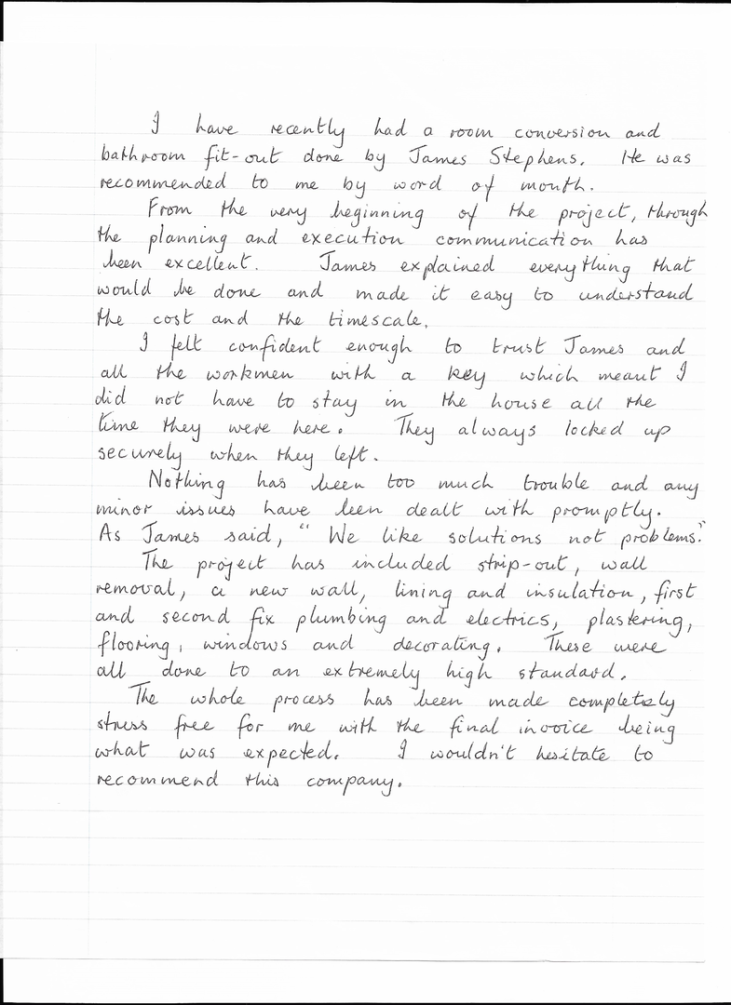 I have recently had a room conversion and
bathroom fit-out done by James Stephens. He was
recommended to me by word of mouth.
From the very beginning of the project, through
the planning and execution communication has
been excellent. James explained everything that
would be done and made it easy to understand
the cost and the timescale.
I felt confident enough to trust James and
all the workmen with a key which meant I
did not have to stay in the house all the
time they were here. They always locked up
securely when they left.
Nothing has been too much trouble and any
minor issues have been dealt with promptly.
As James said, "We like solutions not problems."
The project has included strip-out, wall
removal, a new wall, lining and insulation, first
and second fix plumbing and electrics, plastering,
flooring, windows and decorating. These were
all done to an extremely high standard.
The whole process has been made completely
stress free for me with the final invoice being
what was expected. I wouldn't hesitate to
recommend this company.